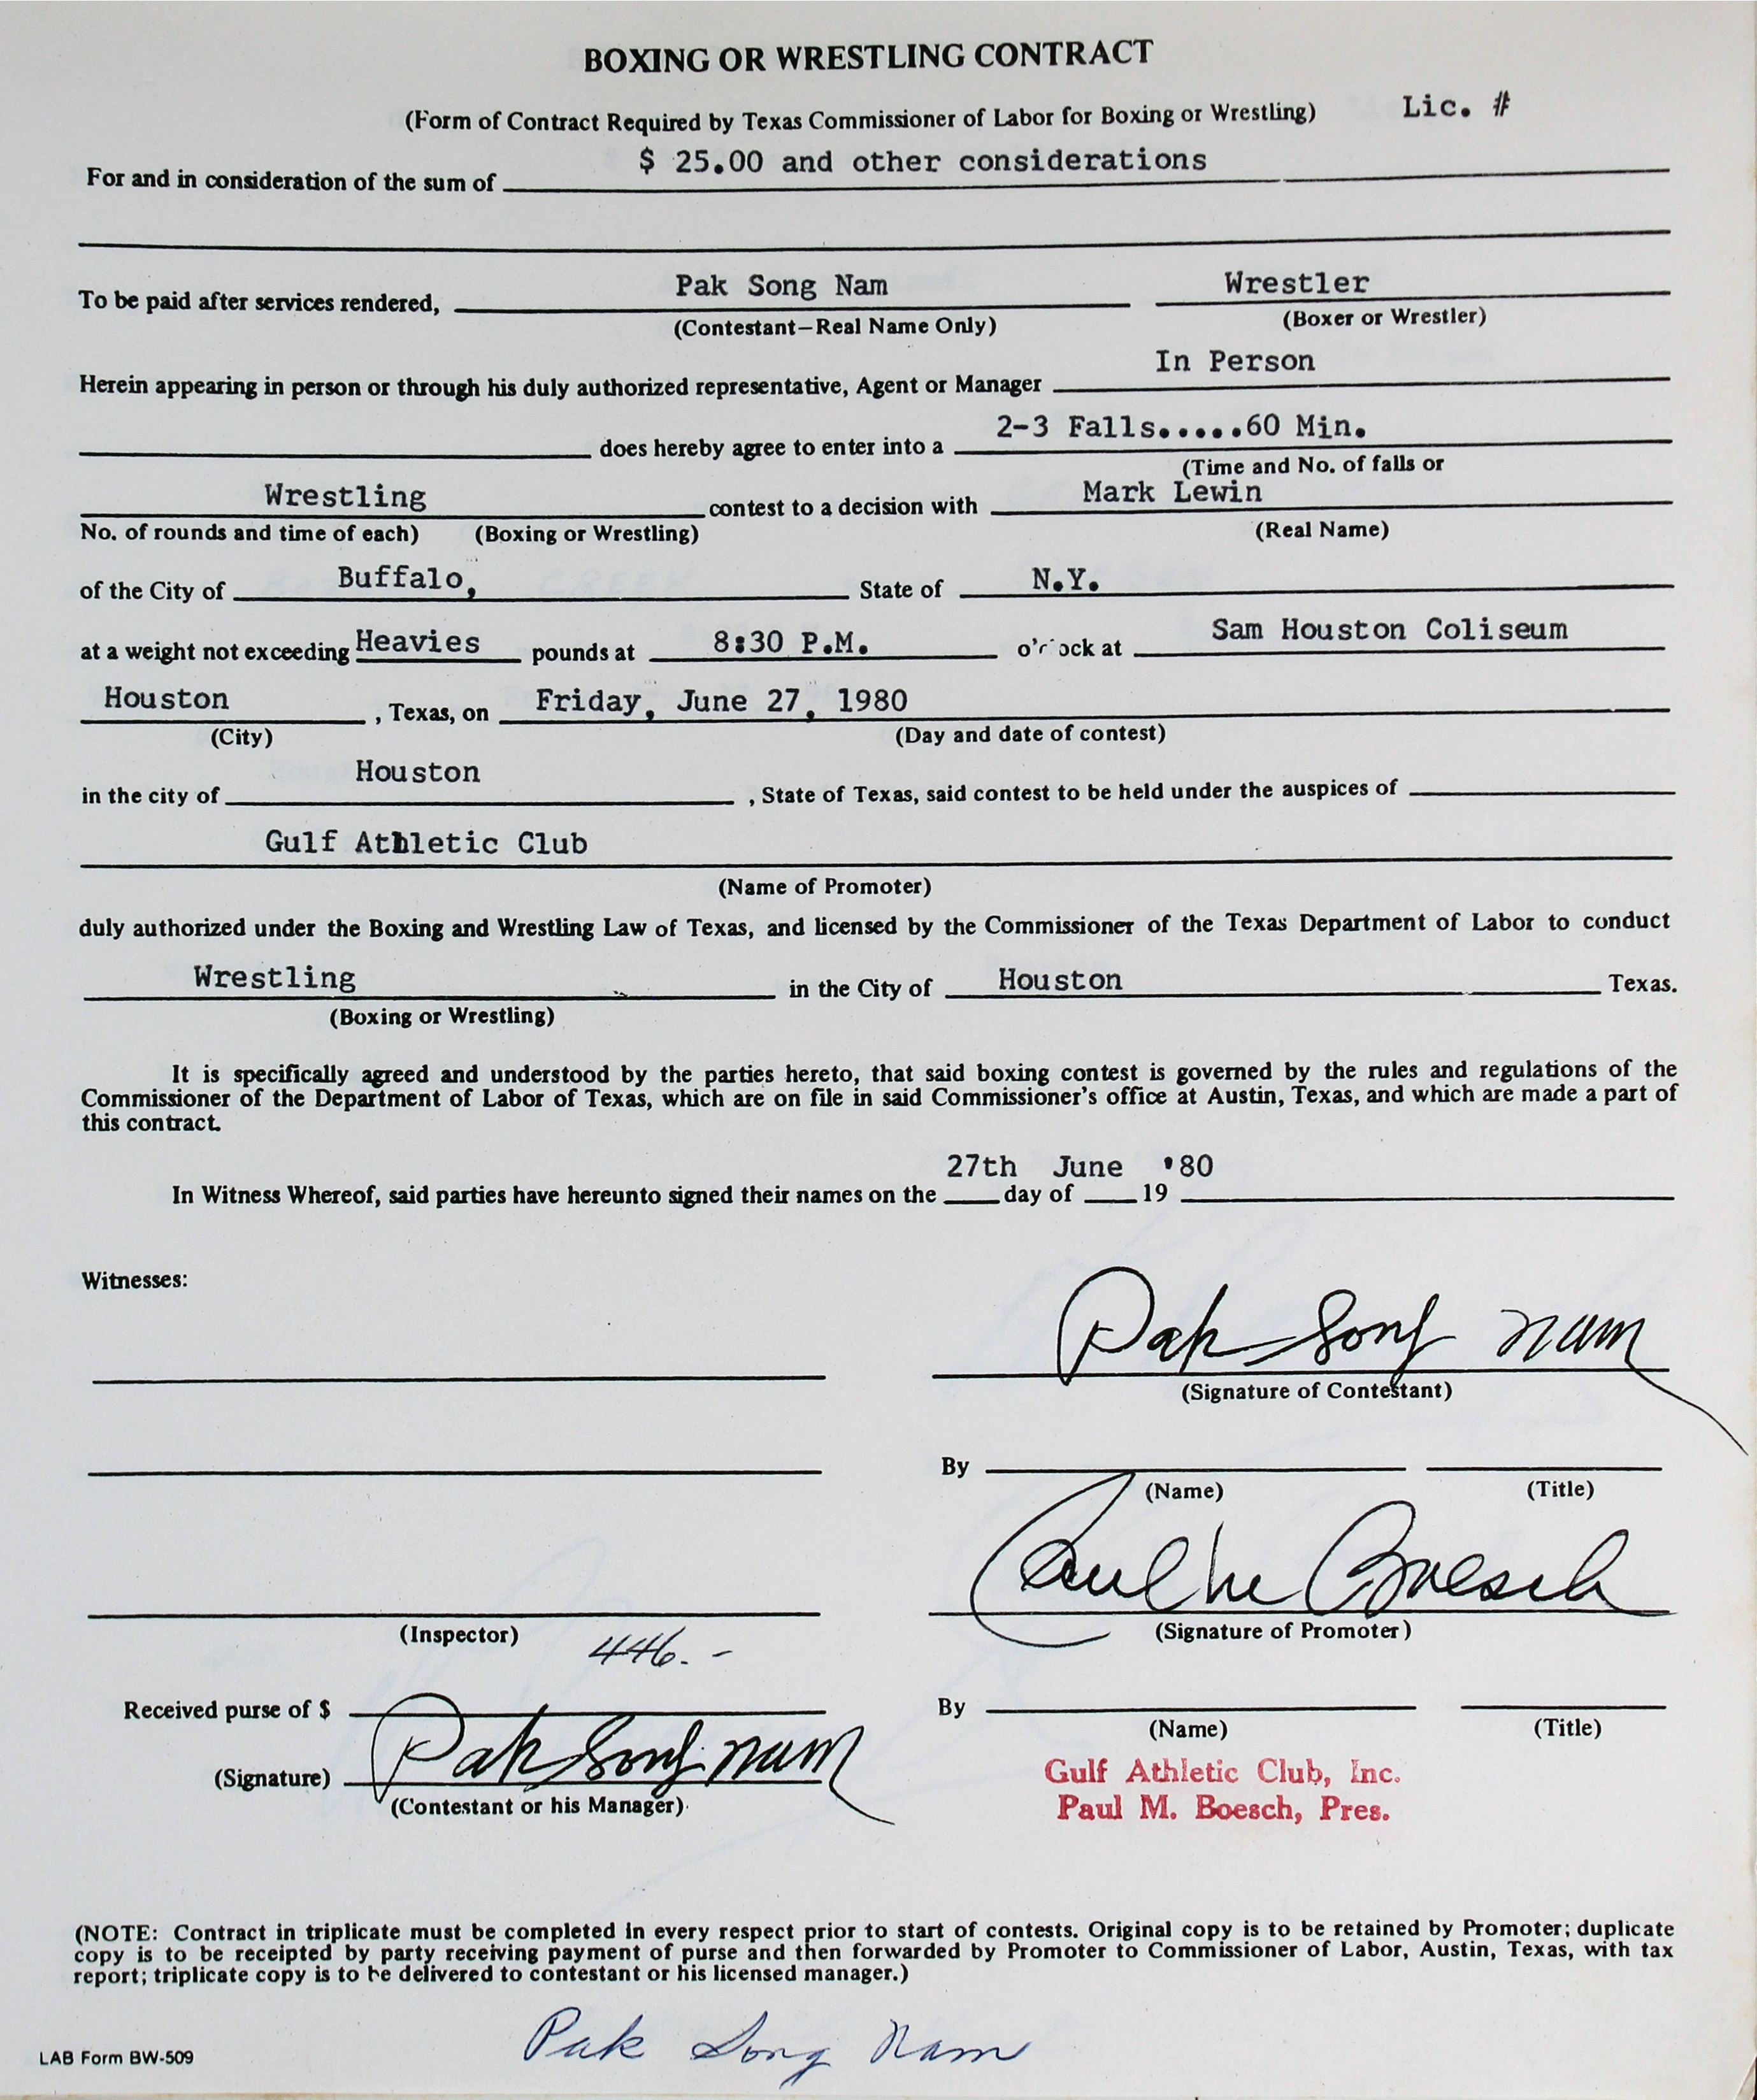 BOXING OR WRESTLING CONTRACT
(Form of Contract Required by Texas Commissioner of Labor for Boxing or Wrestling) Lic. #
For and in consideration of the sum of $ 25.00 and other considerations
To be paid after services rendered, Pak Song Nam Wrestler
(Contestant—Real Name Only) (Boxer or Wrestler)
Herein appearing in person or through his duly authorized representative, Agent or Manager In Person
does hereby agree to enter into a 2-3 Falls.....60 Min.
(Time and No. of falls or
Wrestling contest to a decision with Mark Lewin
No. of rounds and time of each) (Boxing or Wrestling) (Real Name)
of the City of Buffalo, State of N.Y.
at a weight not exceeding Heavies pounds at 8:30 P.M. o'clock at Sam Houston Coliseum
Houston , Texas, on Friday, June 27, 1980
(City) (Day and date of contest)
in the city of Houston , State of Texas, said contest to be held under the auspices of
Gulf Athletic Club
(Name of Promoter)
duly authorized under the Boxing and Wrestling Law of Texas, and licensed by the Commissioner of the Texas Department of Labor to conduct
Wrestling in the City of Houston Texas.
(Boxing or Wrestling)
It is specifically agreed and understood by the parties hereto, that said boxing contest is governed by the rules and regulations of the
Commissioner of the Department of Labor of Texas, which are on file in said Commissioner's office at Austin, Texas, and which are made a part of
this contract.
27th June '80
In Witness Whereof, said parties have hereunto signed their names on the day of 19
Witnesses:
Pak Song Nam
(Signature of Contestant)
By
(Name) (Title)
Paul M Boesch
(Inspector) (Signature of Promoter)
446.-
Received purse of $ By
(Name) (Title)
(Signature) Pak Song Nam
(Contestant or his Manager)
Gulf Athletic Club, Inc.
Paul M. Boesch, Pres.
(NOTE: Contract in triplicate must be completed in every respect prior to start of contests. Original copy is to be retained by Promoter; duplicate
copy is to be receipted by party receiving payment of purse and then forwarded by Promoter to Commissioner of Labor, Austin, Texas, with tax
report; triplicate copy is to be delivered to contestant or his licensed manager.)
Pak Song Nam
LAB Form BW-509